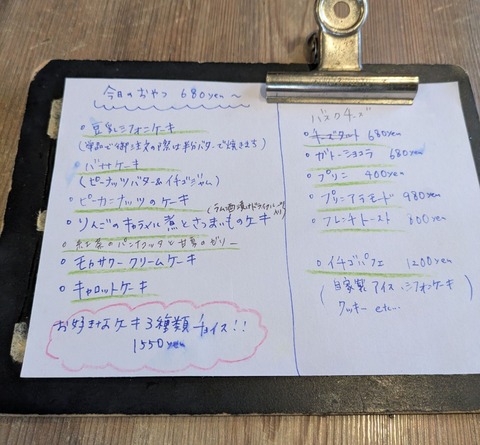 今日のおやつ 680yen〜
豆乳シフォンケーキ
バナナケーキ
(ピーナッツバター&イチゴジャム)
ピーカンナッツのケーキ
りんごのキャラメル煮とさつまいものケーキ
紅茶のパンナコッタと甘夏のゼリー
モカサワークリームケーキ
キャロットケーキ
お好きなケーキ3種類チョイス!!
1550yen
バスクチーズ
チーズタルト 680yen
ガトーショコラ 680yen
プリン 400yen
プリンアラモード 980yen
フレンチトースト 800yen
イチゴパフェ 1200yen
(自家製アイス、シフォンケーキ
クッキー etc...